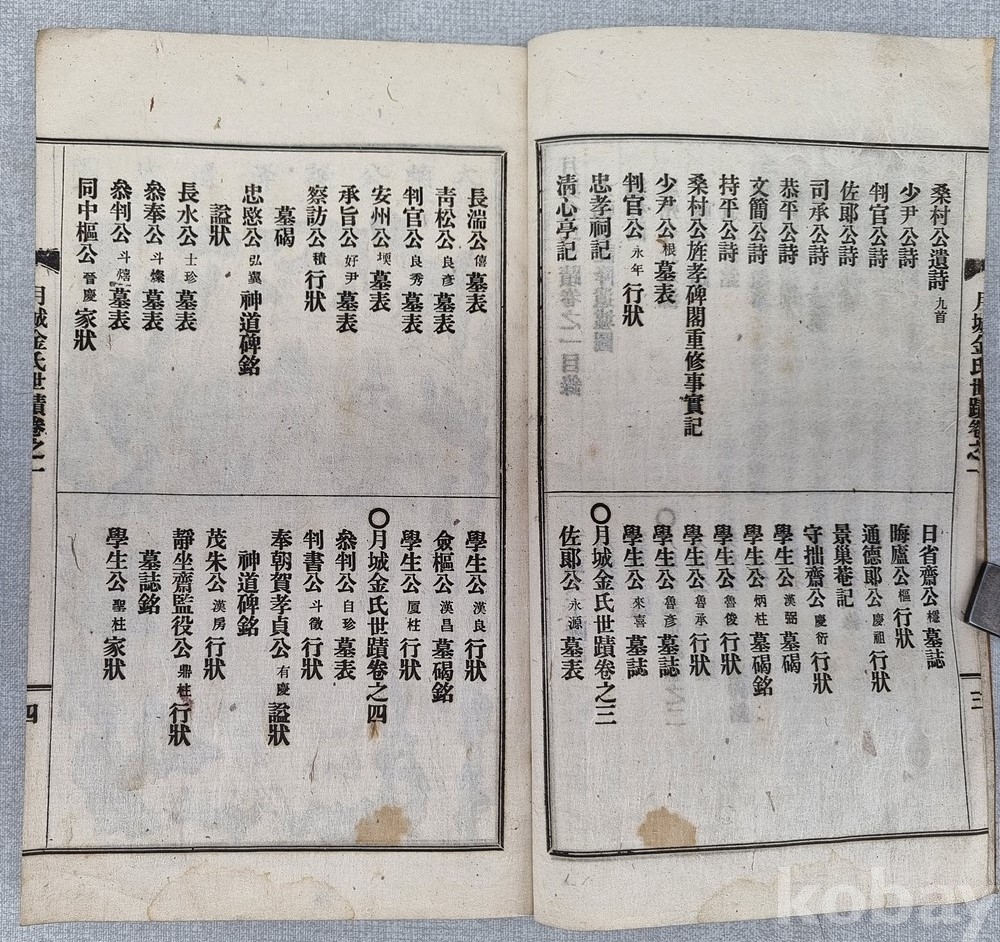 月城金氏世蹟卷之一
三
桑村公遺詩 九首
少尹公詩
判官公詩
佐郞公詩
司承公詩
恭平公詩
文簡公詩
持平公詩
桑村公旌孝碑閣重修事實記
少尹公 根 墓表
判官公 永年 行狀
忠孝祠記
淸心亭記
日省齋公 穩 墓誌
晦廬公 樞 行狀
通德郞公 慶祖 行狀
景巢菴記
守拙齋公 慶衍 行狀
學生公 漢弼 墓碣
學生公 炳柱 墓碣銘
學生公 魯俊 行狀
學生公 魯承 行狀
學生公 魯彦 墓誌
學生公 來喜 墓誌
〇月城金氏世蹟卷之三
佐郞公 永源 墓表
長湍公 僖 墓表
靑松公 良彦 墓表
判官公 良秀 墓表
安州公 墓表
承旨公 好尹 墓表
察訪公 積 行狀
墓碣
忠愍公 弘翼 神道碑銘
諡狀
長水公 士珍 墓表
叅奉公 斗燦 墓表
叅判公 斗熺 墓表
同中樞公 晉慶 家狀
學生公 漢良 行狀
僉樞公 漢昌 墓碣銘
學生公 厦柱 行狀
〇月城金氏世蹟卷之四
叅判公 自珍 墓表
判書公 斗徵 行狀
奉朝賀孝貞公 有慶 諡狀
神道碑銘
茂朱公 漢房 行狀
靜坐齋監役公 鼎柱 行狀
墓誌銘
學生公 聖柱 家狀
月城金氏世蹟卷之一
四
kobay